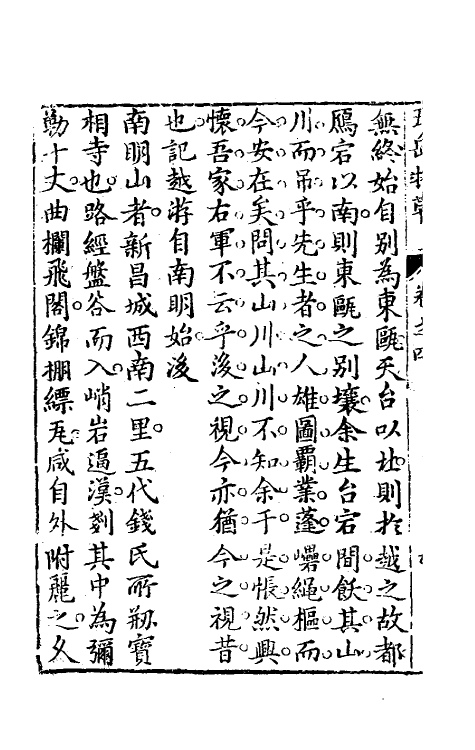 無終始自別為東甌天台以北則於越之故都
鴈宕以南則東甌之別壤余生台宕間飫其山
川而吊乎先生者之人雄圖霸業蓬礨繩樞而
今安在矣問其山川山川不知余于是悵然興
懷吾家右軍不云乎後之視今亦猶今之視昔
也記越游自南明始後
南明山者新昌城西南二里五代錢氏所剏寶
相寺也路經盤谷而入峭岩逼漢剜其中為彌
勒十丈曲欄飛閣錦棚縹瓦咸自外附麗之久